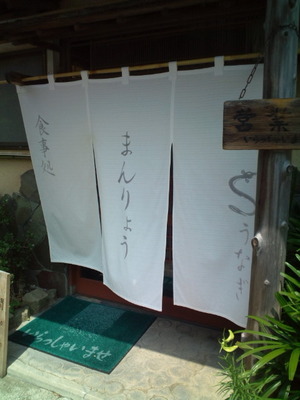 うなぎ
まんりょう
食事処
営業
いらっしゃいませ